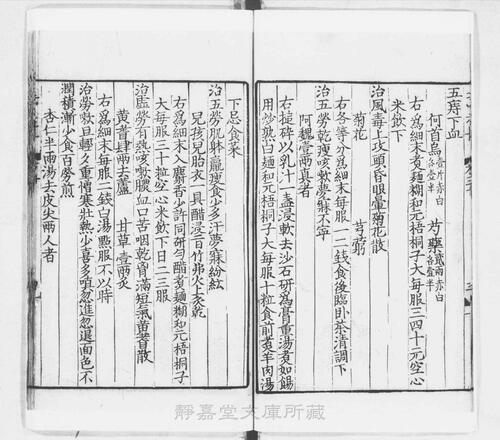 五痔下血
何首烏壹斤赤白各壹半 芍藥貳兩赤白各壹半
右爲細末煮麵糊和元梧桐子大每服三四十元空心
米飲下
治風毒上攻頭昏眼暈菊花散
菊花 芎藭
右各等分爲細末每服一二錢食後臨卧茶清調下
治五勞乾瘦咳嗽夢寐不寧
阿魏壹兩真者
右搥碎以乳汁一盞浸軟去沙石研爲膏重湯煮如餳
用炒熟麵糊和元梧桐子大每服十粒食前煮羊肉湯
下忌食菜
治五勞肌躰羸瘦食少多汗夢寐紛紜
兒孩兒胎衣一具醋浸百竹弗火上炙乾
右爲細末入麝香少許同研勻醋煮麵糊和元梧桐子
大每服三十粒空心米飲下日二三服
治虛勞有熱咳嗽膿血口苦咽乾胷滿短氣黄耆散
黄耆肆兩去蘆 甘草壹兩炙
右爲細末每服二錢白湯點服不以時
治勞嗽旦輕夕重憎寒壯熱少喜多嗔忽進忽退面色不
潤積漸少食百勞煎
杏仁半兩湯去皮尖兩人者
靜嘉堂文庫所藏